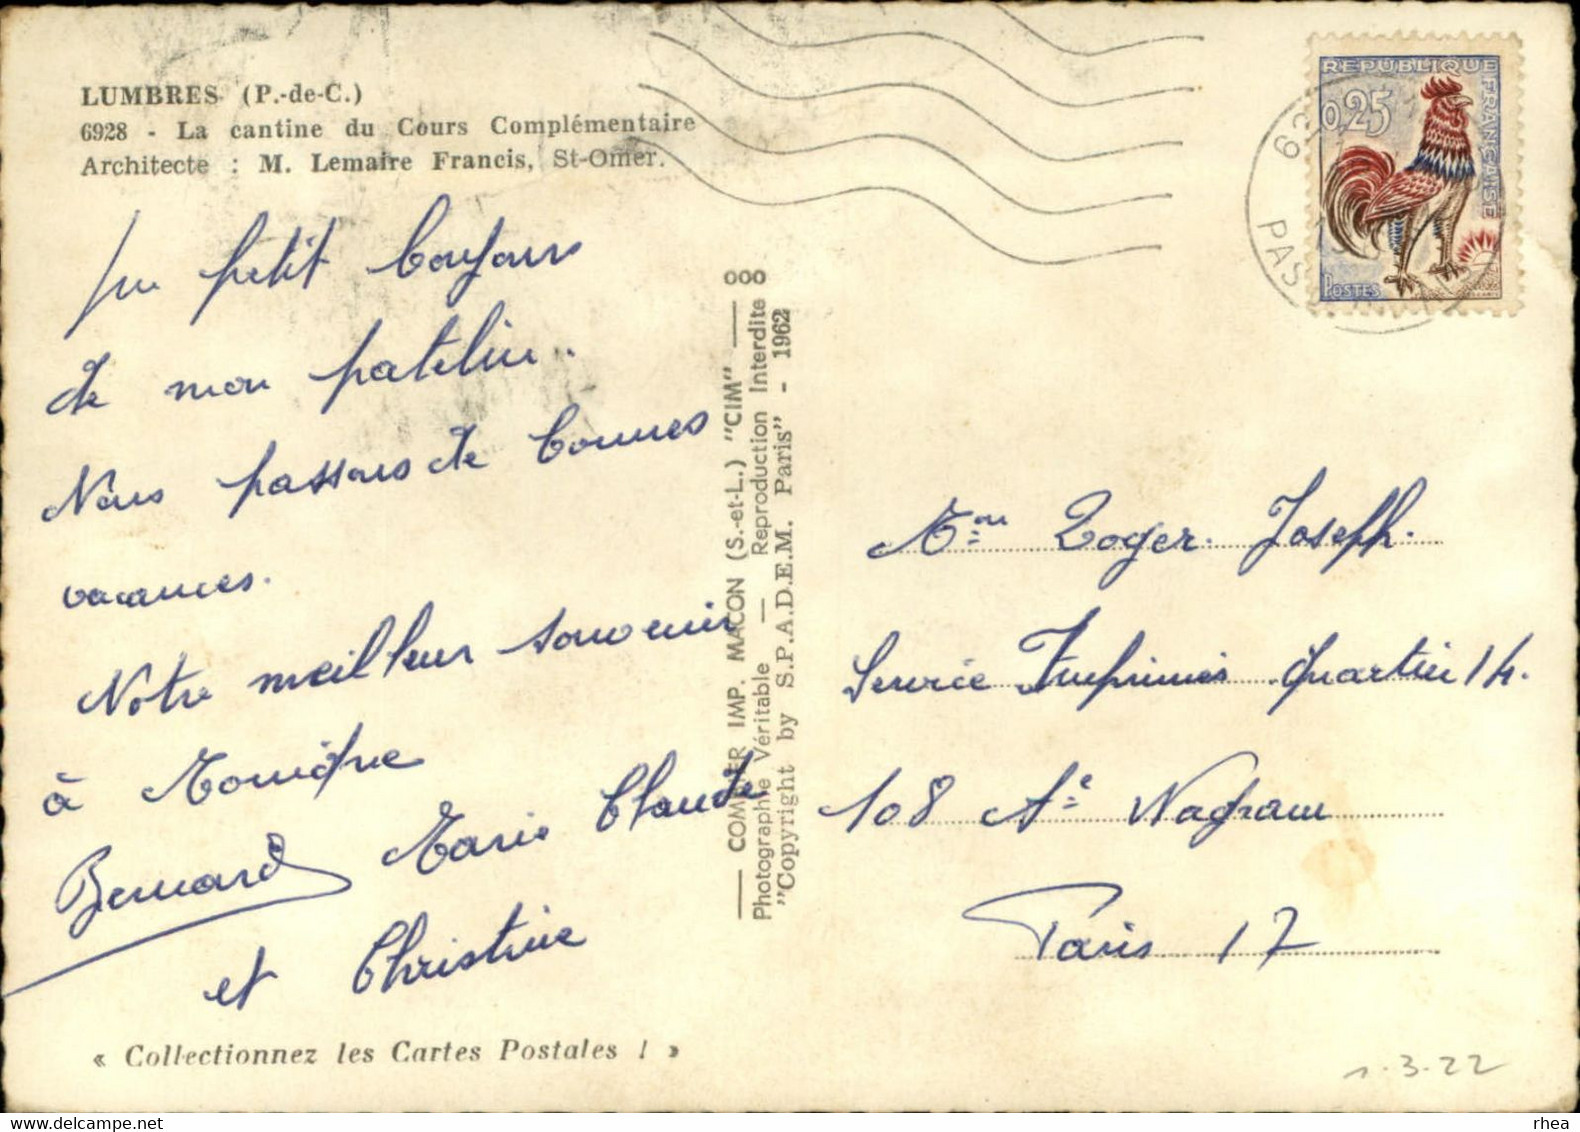 LUMBRES (P.-de-C.)
6928 - La cantine du Cours Complémentaire
Architecte : M. Lemaire Francis, St-Omer.
Un petit bonjour
de mon patelin.
Nous passons de bonnes
vacances.
Notre meilleur souvenir
à Monique
Bernard Marie Claude
et Christine
« Collectionnez les Cartes Postales ! »
COMBIER IMP. MACON (S.-et-L.) "CIM"
Photographie Véritable — Reproduction Interdite
"Copyright by S.P.A.D.E.M. Paris" - 1962
REPUBLIQUE FRANÇAISE
0,25
POSTES
62
PAS
Mon Roger Joseph.
Service Imprimés Quartier 14.
108 Ae Wagram
Paris 17
1.3.22
rhea
delcampe.net